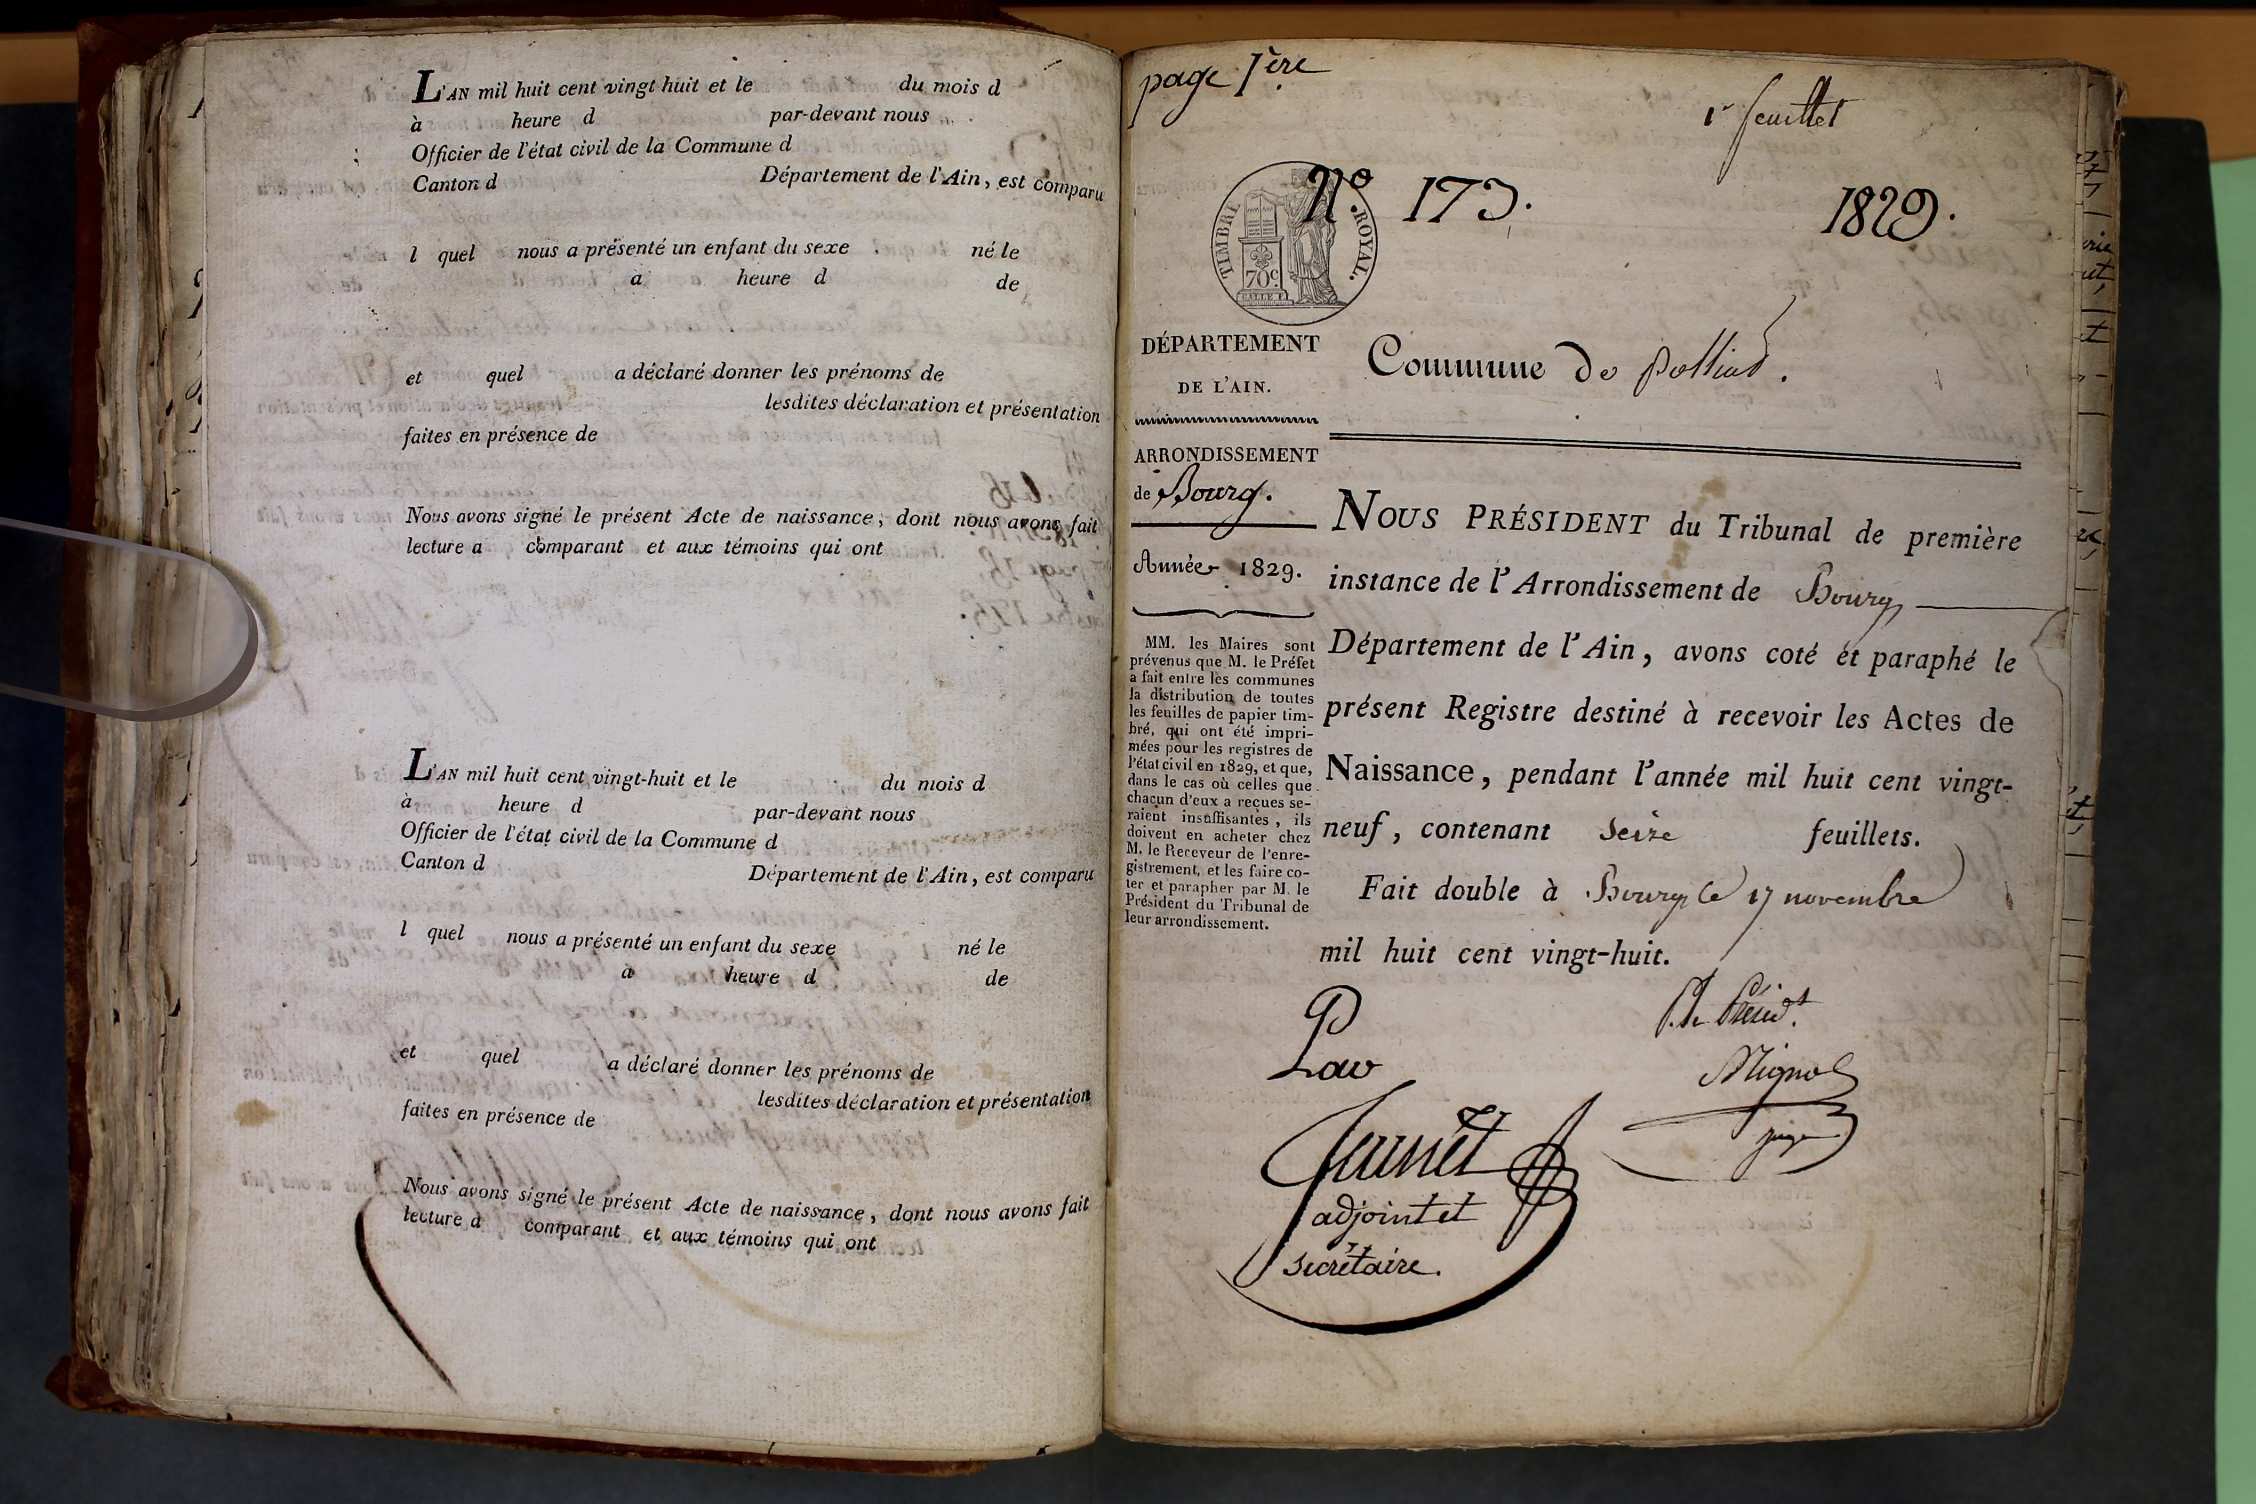 L'AN mil huit cent vingt huit et le du mois d
à heure d par-devant nous
Officier de l'état civil de la Commune d
Canton d Département de l'Ain, est comparu
l quel nous a présenté un enfant du sexe né le
à heure d de
et quel a déclaré donner les prénoms de
lesdites déclaration et présentation
faites en présence de
Nous avons signé le présent Acte de naissance, dont nous avons fait
lecture a comparant et aux témoins qui ont
L'AN mil huit cent vingt-huit et le du mois d
à heure d par-devant nous
Officier de l'état civil de la Commune d
Canton d Département de l'Ain, est comparu
l quel nous a présenté un enfant du sexe né le
à heure d de
et quel a déclaré donner les prénoms de
lesdites déclaration et présentation
faites en présence de
Nous avons signé le présent Acte de naissance, dont nous avons fait
lecture a comparant et aux témoins qui ont
page 1ère
1r feuillet
No 173. 1829.
TIMBRE ROYAL.
70c.
DÉPARTEMENT
DE L'AIN.
Commune de Polliat.
ARRONDISSEMENT
de Bourg.
Année 1829.
MM. les Maires sont
prévenus que M. le Préfet
a fait entre les communes
la distribution de toutes
les feuilles de papier tim-
bré, qui ont été impri-
mées pour les registres de
l'état civil en 1829, et que,
dans le cas où celles que
chacun d'eux a reçues se-
raient insuffisantes, ils
doivent en acheter chez
M. le Receveur de l'enre-
gistrement, et les faire co-
ter et parapher par M. le
Président du Tribunal de
leur arrondissement.
NOUS PRÉSIDENT du Tribunal de première
instance de l'Arrondissement de Bourg
Département de l'Ain, avons coté et paraphé le
présent Registre destiné à recevoir les Actes de
Naissance, pendant l'année mil huit cent vingt-
neuf, contenant seize feuillets.
Fait double à Bourg le 17 novembre
mil huit cent vingt-huit.
P. le Présidt.
juge
adjoint et
secrétaire.